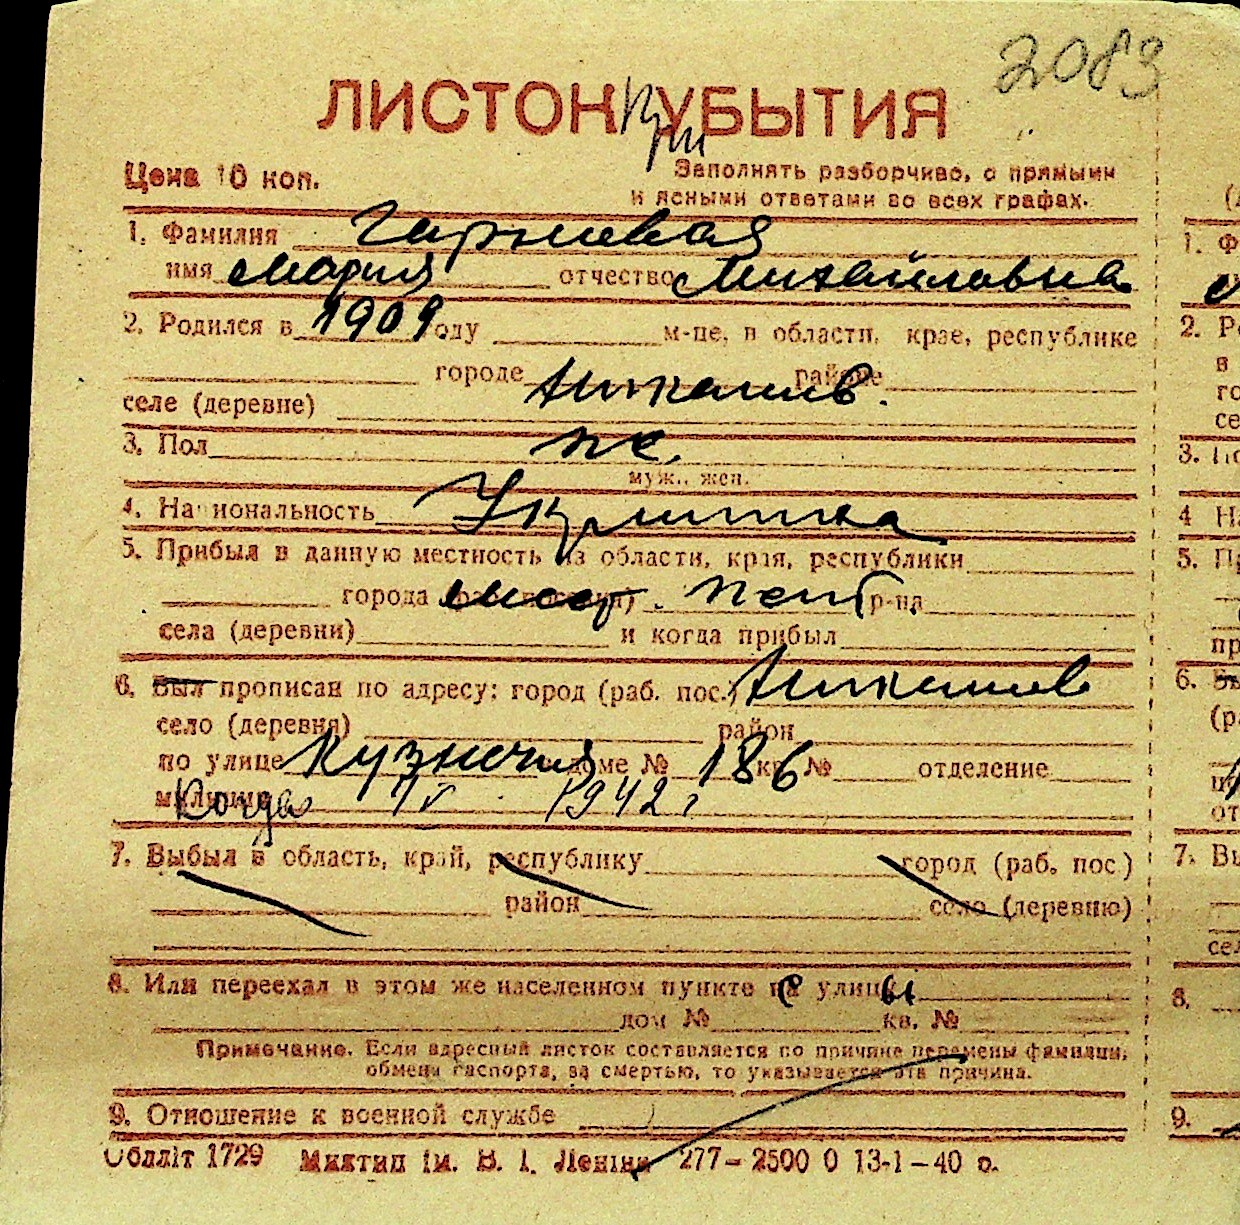 2083
ЛИСТОК При УБЫТИЯ
Цена 10 коп.
Заполнять разборчиво, с прямыми
и ясными ответами во всех графах.
1. Фамилия
имя Мария отчество Михайловна
2. Родился в 1909 году м-це, в области, крае, республике
городе Николаев. районе
селе (деревне)
3. Пол ж.
муж., жен.
4. Национальность Украинка
5. Прибыл в данную местность из области, края, республики
города р-на
села (деревни) и когда прибыл
6. Был прописан по адресу: город (раб. пос.) Николаев
село (деревня) район
по улице Кузнечная доме № 186 кв. № отделение
милиции Когда IV 1942 г
7. Выбыл в область, край, республику город (раб. пос.)
район село (деревню)
8. Или переехал в этом же населенном пункте с улицы
дом № кв. №
Примечание. Если адресный листок составляется по причине перемены фамилии,
обмена паспорта, за смертью, то указывается эта причина.
9. Отношение к военной службе
Обллiт 1729 Миктип iм. В. I. Ленiна 277–2500 0 13-1–40 р.
1. Ф
2. Р
в
го
се
3. По
4 На
5. П
пр
6. Бы
(р
от
7. Вы
сел
8.
9.